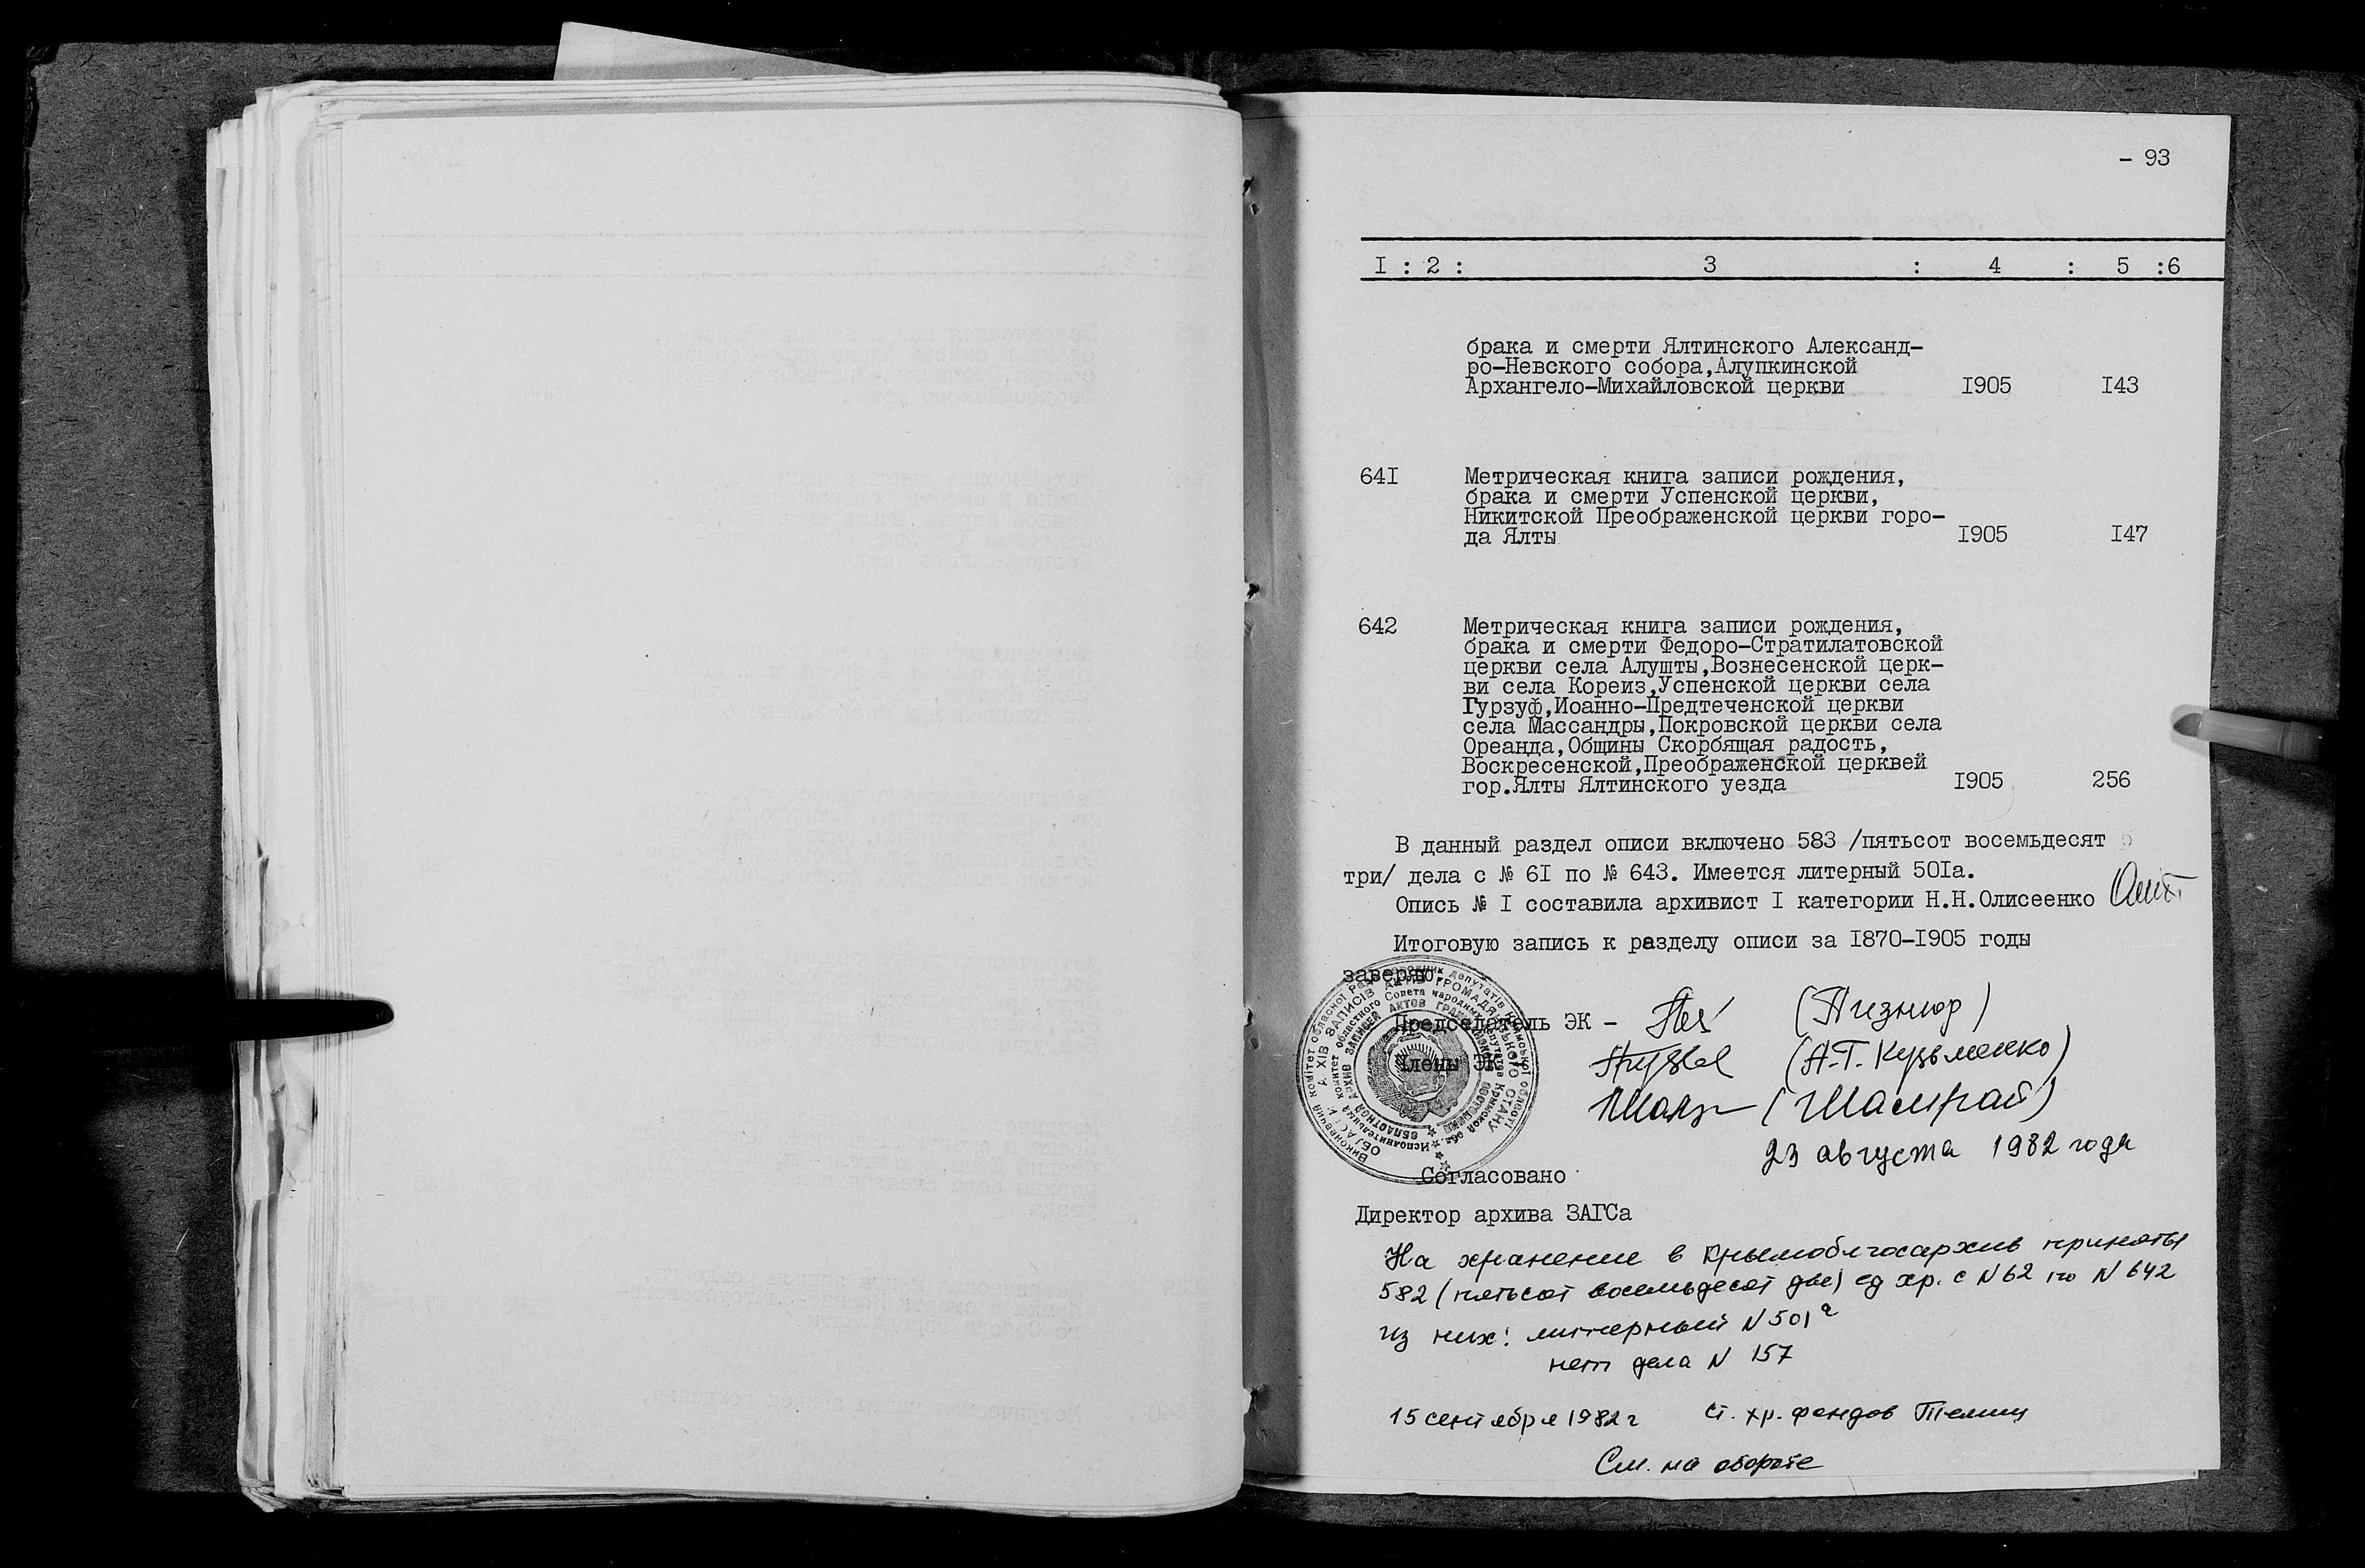 - 93
I : 2 : 3 : 4 : 5 :6
брака и смерти Ялтинского Александ-
ро-Невского собора,Алупкинской
Архангело-Михайловской церкви I905 I43
64I Метрическая книга записи рождения,
брака и смерти Успенской церкви,
Никитской Преображенской церкви горо-
да Ялты I905 I47
642 Метрическая книга записи рождения,
брака и смерти Федоро-Стратилатовской
церкви села Алушты,Вознесенской церк-
ви села Кореиз,Успенской церкви села
Гурзуф,Иоанно-Предтеченской церкви
села Массандры,Покровской церкви села
Ореанда,Общины Скорбящая радость,
Воскресенской,Преображенской церквей
гор.Ялты Ялтинского уезда I905 256
В данный раздел описи включено 583 /пятьсот восемьдесят
три/ дела с № 6I по № 643. Имеется литерный 50Iа.
Опись № I составила архивист I категории Н.Н.Олисеенко
Итоговую запись к разделу описи за I870-I905 годы
заверяю:
Председатель ЭК -
Члены ЭК (А.Т. Кузьменко)
(Шамрай)
23 августа 1982 года
Согласовано
Директор архива ЗАГСа
На хранение в Крымоблгосархив приняты
582 (пятьсот восемьдесят две) ед хр. с N 62 по N 642
из них: литерный N 501а
нет дела N 157
15 сентября 1982 г ст. хр. фондов
См. на обороте